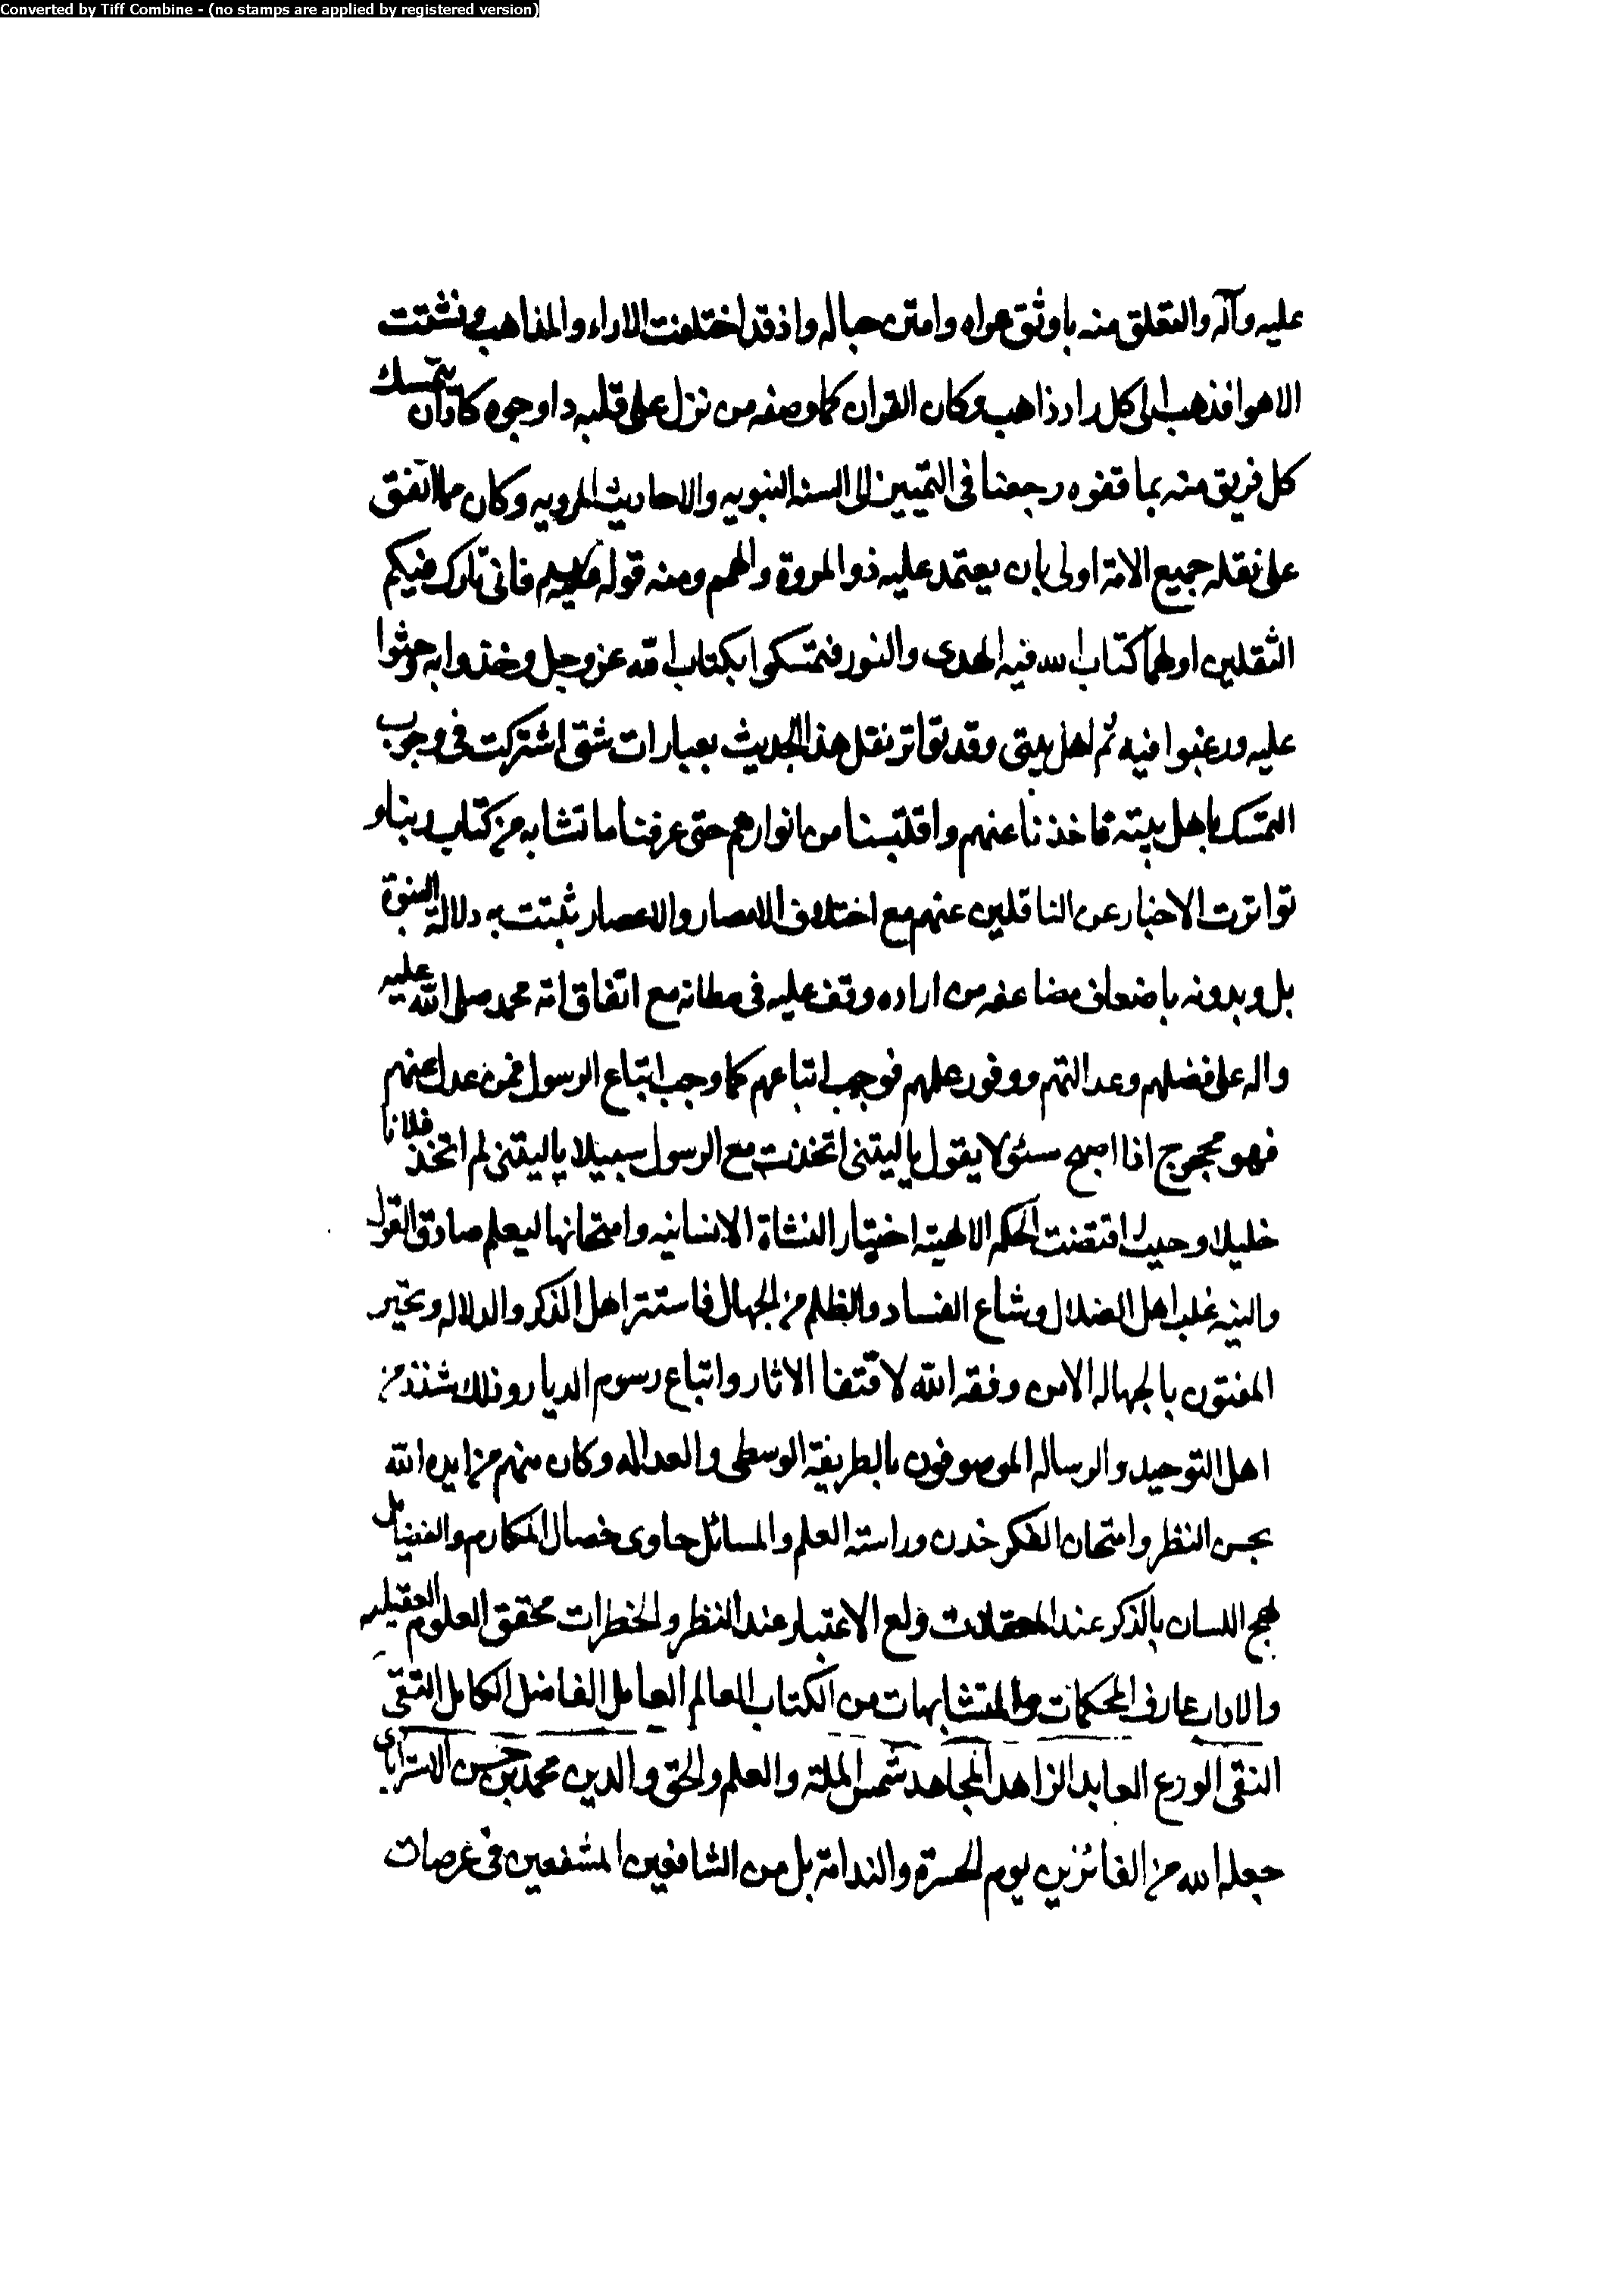 Converted by Tiff Combine - (no stamps are applied by registered version)
عليه وآله والتعلق منه باوثق عراه وامتن حباله واذ قد اختلفت الاراء والمذاهب وتشتت
الاهوا فذهب الى كل راد ذاهب وكان القران كما وصفه من نزل على قلبه ذا وجوه كادان يتمسك
كل فريق منه بما قفوه رجعنا فى التميين الى السنه النبويه والاحاديث المرويه وكان مما اتفق
على نقله جميع الامة اولى بان يعتمد عليه ذو المروة والهمم ومنه قوله فانى تارك فيكم
الثقلين اولهما كتاب الله فيه الهدى والنور فتمسكوا بكتاب الله عز وجل وخذوا به وحثوا
عليه ورغبوا فيه ثم اهل بيتى وقد تواتر نقل هذا الحديث بعبارات شتى اشتركت فى وجوب
التمسك باهل بيته فاخذنا عنهم واقتبسنا من انوارهم حتى عرفنا ما تشابه من كتاب ربنا و
تواترت الاخبار عن الناقلين عنهم مع اختلاف الامصار والاعصار ثبتت به دلالة النبوة
بل وبدونه باضعاف مضاعفه من اراده وقف عليه فى مظانه مع اتفاق امة محمد صلى الله عليه
واله على فضلهم وعدالتهم ووفور علمهم فوجب اتباعهم كما وجب اتباع الرسول فمن عدل عنهم
فهو محجوج اذا اصبح مسئولا يقول ياليتنى اتخذت مع الرسول سبيلا ياليتنى لم اتخذ فلانا
خليلا وحيث اقتضت الحكمه الالهية اختبار النشاة الانسانيه وامتحانها ليعلم صادق القول
والنيه غلب اهل الضلال وشاع الفساد والظلم من الجهال فاستتر اهل الذكر والدلاله وتحير
المفتون بالجهاله الا من وفقه الله لاقتفا الاثار واتباع رسوم الديار وذلك شذذ من
اهل التوحيد والرساله الموصوفون بالطريقة الوسطى والعداله وكان منهم من ايده الله
بحسن النظر وامتحان الفكر خدن وراسته العلم والمسائل حاوى خصال المكارم والفضيائل
لهج اللسان بالذكر عند ولع الاعتبار عند النظر والخطرات محقق العلوم العقيليه
والاداب عارف المحكمات والمتشابهات من الكتاب العالم العامل الفاضل الكامل التقى
النقى الورع العابد الزاهد المجاهد شمس الملة والعلم والحق والدين محمد بن حسن الاستراباى
جعله الله من الفائزين يوم الحسرة والندامة بل من الشافعين المشفعين فى عرصات